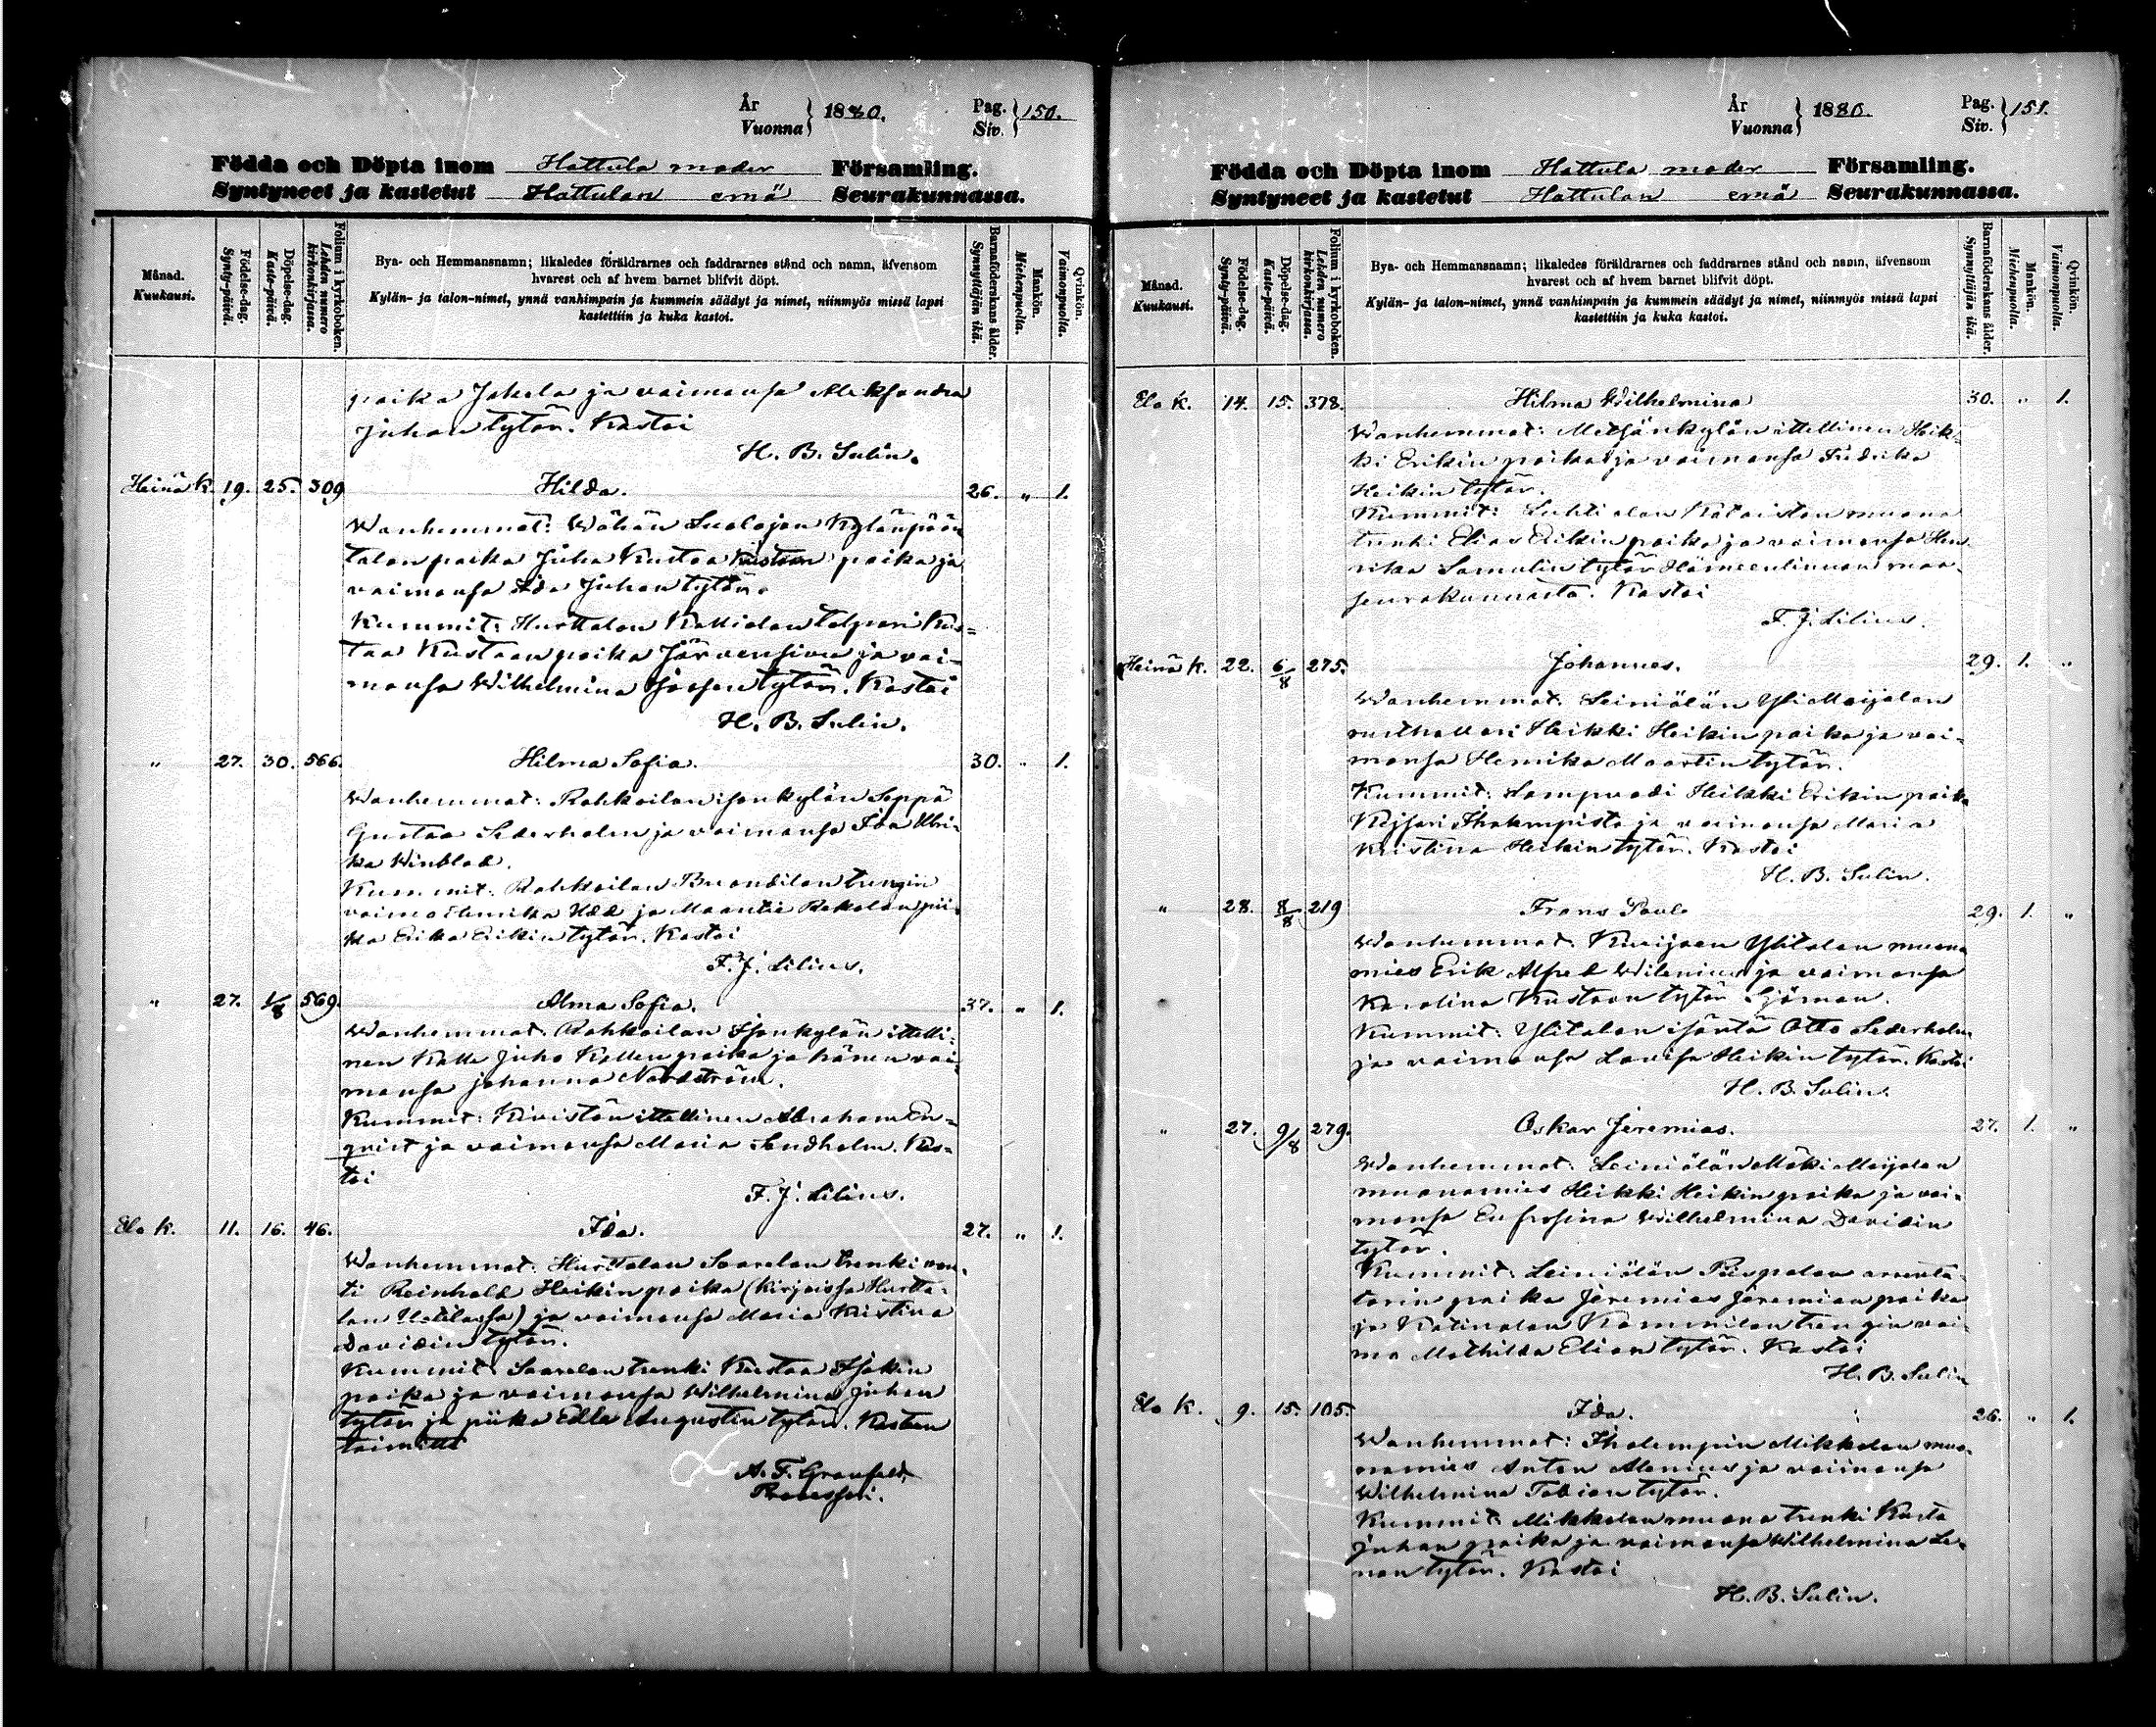 År
Vuonna } 1880.
Pag.
Siv. } 150.
Födda och Döpta inom Hattula moder Församling.
Syntyneet ja kastetut Hattulan emä Seurakunnassa.
Månad.
Kuukausi.
Födelse-dag.
Synty-päivä.
Döpelse-dag.
Kaste-päivä.
Folium i kyrkoboken.
Lehden numero kirkonkirjassa.
Bya- och Hemmansnamn; likaledes föräldrarnes och faddrarnes stånd och namn, äfvensom
hvarest och af hvem barnet blifvit döpt.
Kylän- ja talon-nimet, ynnä vanhimpain ja kummein säädyt ja nimet, niinmyös missä lapsi
kastettiin ja kuka kastoi.
Barnaföderskans ålder.
Synnyttäjän ikä.
Mankön.
Miehenpuolta.
Qvinkön.
Vaimonpuolta.
poika Jakola ja vaimonsa Aleksandra
Juhan tytär. Kastoi
H. B. Sulin.
Heinä k. 19. 25. 309 Hilda. 26. " 1.
Wanhemmat: Wähän Kylänpään
talonpoika Juha Kustaa Kustaan poika ja
vaimonsa Ida Juhan tytär.
Kummit: Hurttalan Kallialan talpari Kus=
taa Kustaan poika Järvensivu ja vai=
monsa Wilhelmina tytär. Kastoi
H. B. Sulin.
" 27. 30. 566. Hilma Sofia. 30. " 1.
Wanhemmat: Rahkoilan isonkylän Seppä
Gustaa Sederholm ja vaimonsa Ida Ulri=
ka Winblad.
Kummit: Rahkoilan trengin
vaimo Henrika Udd ja Rekolan pii=
ka Erika Erikin tytär. Kastoi
F. J. Lilius.
" 27. 1/8 569. Alma Sofia. 37. " 1.
Wanhemmat: Rahkoilan Isonkylän ittelli=
nen Kalle Juho Kallen poika ja hänen vai=
monsa Johanna Nordström.
Kummit: Kiviistön ittellinen Abraham En=
qvist ja vaimonsa Maria Sundholm. Kas=
toi
F. J. Lilius.
Elo k. 11. 16. 46. Ida. 27. " 1.
Wanhemmat: Hurttalan Saarelan trenki von=
ti Reinhold Heikin poika (kirjoissa Hurtta=
lan Uotilassa) ja vaimonsa Maria Kristina
Davidin tytär.
Kummit: Saarelan trenki Kustaa Isakin
poika ja vaimonsa Wilhelmina Juhan
tytär ja piika Edla Augustin tytär. Kasteen
toimitti
A. F. Granfelt,
Provessori.
År
Vuonna } 1880.
Pag.
Siv. } 151.
Födda och Döpta inom Hattula moder Församling.
Syntyneet ja kastetut Hattulan emä Seurakunnassa.
Månad.
Kuukausi.
Födelse-dag.
Synty-päivä.
Döpelse-dag.
Kaste-päivä.
Folium i kyrkoboken.
Lehden numero kirkonkirjassa.
Bya- och Hemmansnamn; likaledes föräldrarnes och faddrarnes stånd och namn, äfvensom
hvarest och af hvem barnet blifvit döpt.
Kylän- ja talon-nimet, ynnä vanhimpain ja kummein säädyt ja nimet, niinmyös missä lapsi
kastettiin ja kuka kastoi.
Barnaföderskans ålder.
Synnyttäjän ikä.
Mankön.
Miehenpuolta.
Qvinkön.
Vaimonpuolta.
Elo k. 14. 15. 378. Hilma Wilhelmina 30. " 1.
Wanhemmat: Metsänkylän ittellinen Heik=
ki Erikin poika ja vaimonsa Fredrika
Heikin tytär.
Kummit: Luhtialan Kataiston muona
trenki Elias Erikin poika ja vaimonsa Hen=
rika Samulin tytär Hämeenlinnan maa=
seurakunnasta. Kastoi
F. J. Lilius.
Heinä k. 22. 6/8 275. Johannes. 29. 1. "
Wanhemmat: Leiniälän Yli Maijalan
rusthollari Heikki Heikin poika ja vai=
monsa Henrika Maartin tytär.
Kummit: Lampuodi Heikki Erikin poika
Ihalempista ja vaimonsa Maria
Kristina Heikin tytär. Kastoi
H. B. Sulin.
" 28. 8/8 219 Frans Paul. 29. 1. "
Wanhemmat: Kuvijoen Ylitalon muona
mies Erik Alfred Wilenius ja vaimonsa
Karolina Kustaan tytär Sjöman.
Kummit: Ylitalon isäntä Otto Sederholm
ja vaimonsa Lovisa Heikin tytär. Kastoi
H. B. Sulin.
" 27. 9/8 279. Oskar Jeremias. 27. 1. "
Wanhemmat: Leiniälän Mäki Maijalan
muonamies Heikki Heikin poika ja vai=
monsa Eufrosina Wilhelmina Davidin
tytär.
Kummit: Leiniälän Piespalan arenta=
torin poika Jeremias Jeremian poika
ja Katinalan Kammilan trengin vai=
mo Mathilda Elian tytär. Kastoi
H. B. Sulin
Elo k. 9. 15. 105. Ida. 26. " 1.
Wanhemmat: Ihalempin Mikkolan muo=
namies Anton Alenius ja vaimonsa
Wilhelmina Tobian tytär.
Kummit: Mikkolan muona trenki Kusta
Juhan poika ja vaimonsa Wilhelmina Le=
nan tytär. Kastoi
H. B. Sulin.